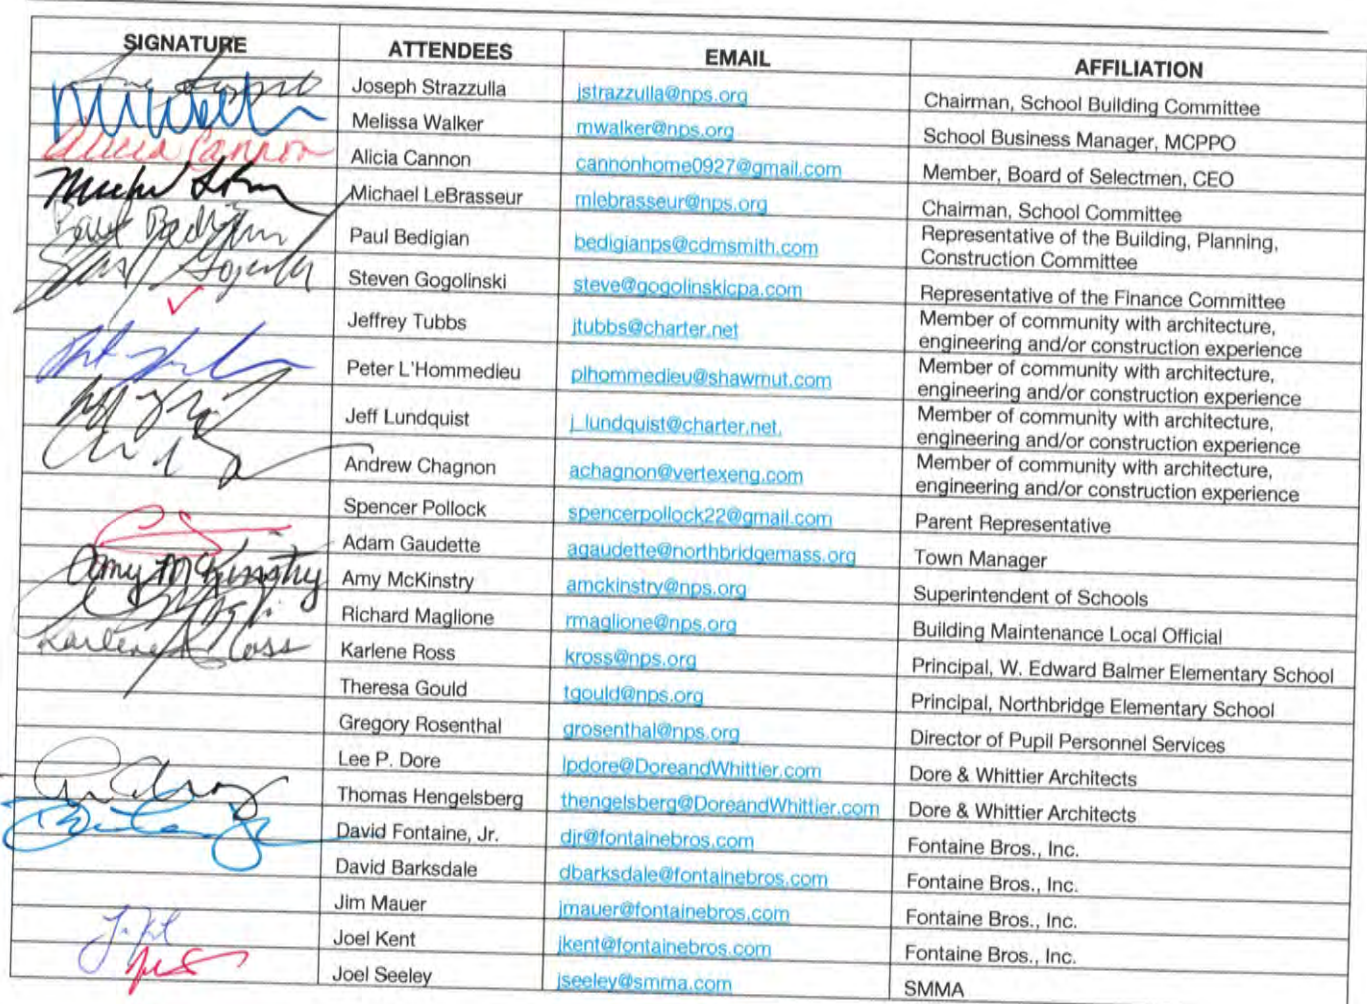 SIGNATURE ATTENDEES EMAIL AFFILIATION
Joseph Strazzulla jstrazzulla@nps.org Chairman, School Building Committee
Melissa Walker mwalker@nps.org School Business Manager, MCPPO
Alicia Cannon Alicia Cannon cannonhome0927@gmail.com Member, Board of Selectmen, CEO
Michael LeBrasseur mlebrasseur@nps.org Chairman, School Committee
Paul Bedigian Paul Bedigian bedigianps@cdmsmith.com Representative of the Building, Planning,
Construction Committee
Steven Gogolinski steve@gogolinskicpa.com Representative of the Finance Committee
Jeffrey Tubbs jtubbs@charter.net Member of community with architecture,
engineering and/or construction experience
Peter L'Hommedieu plhommedieu@shawmut.com Member of community with architecture,
engineering and/or construction experience
Jeff Lundquist j_lundquist@charter.net, Member of community with architecture,
engineering and/or construction experience
Andrew Chagnon achagnon@vertexeng.com Member of community with architecture,
engineering and/or construction experience
Spencer Pollock spencerpollock22@gmail.com Parent Representative
Adam Gaudette agaudette@northbridgemass.org Town Manager
Amy McKinstry Amy McKinstry amckinstry@nps.org Superintendent of Schools
Richard Maglione rmaglione@nps.org Building Maintenance Local Official
Karlene Ross Karlene Ross kross@nps.org Principal, W. Edward Balmer Elementary School
Theresa Gould tgould@nps.org Principal, Northbridge Elementary School
Gregory Rosenthal grosenthal@nps.org Director of Pupil Personnel Services
Lee P. Dore lpdore@DoreandWhittier.com Dore & Whittier Architects
Thomas Hengelsberg thengelsberg@DoreandWhittier.com Dore & Whittier Architects
David Fontaine, Jr. djr@fontainebros.com Fontaine Bros., Inc.
David Barksdale dbarksdale@fontainebros.com Fontaine Bros., Inc.
Jim Mauer jmauer@fontainebros.com Fontaine Bros., Inc.
Joel Kent jkent@fontainebros.com Fontaine Bros., Inc.
Joel Seeley jseeley@smma.com SMMA